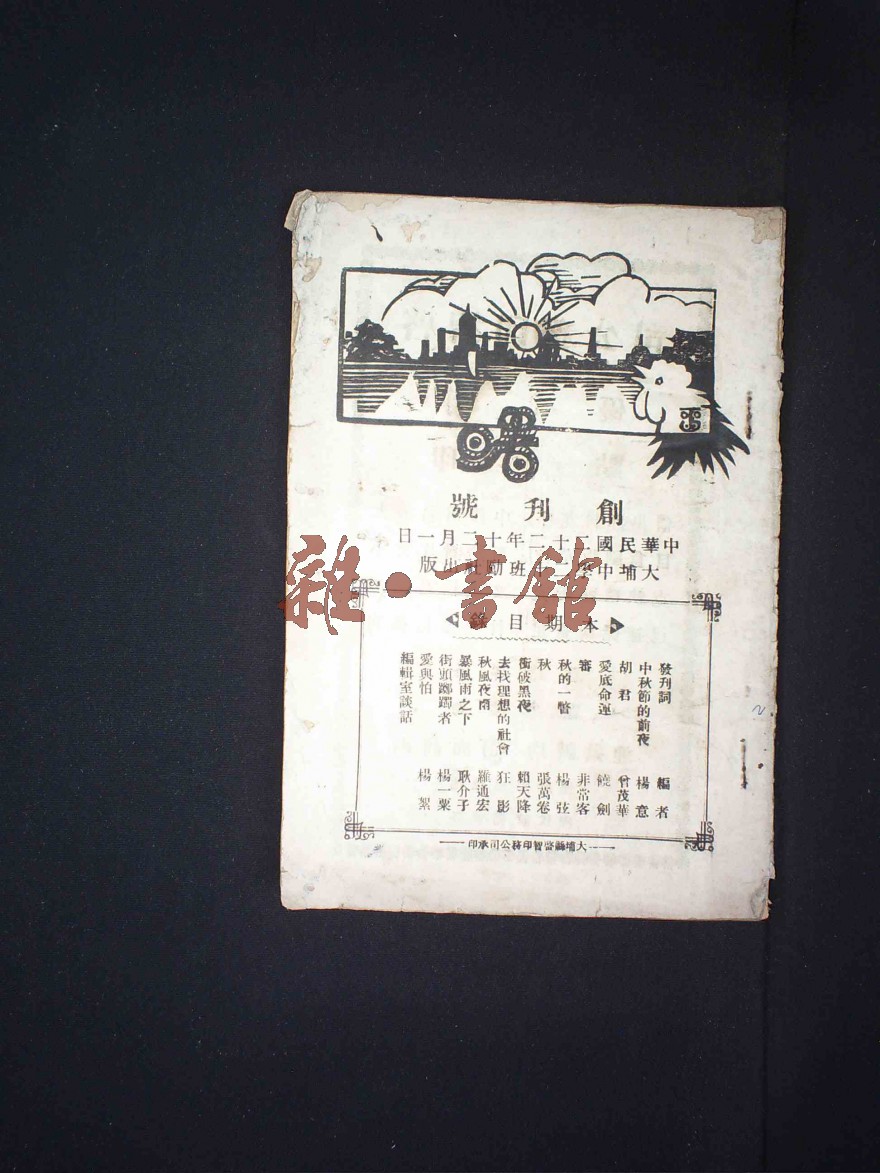 創刊號
中華民國二十二年十二月一日
大埔中學 班勵社出版
本期目錄
發刊詞 編者
中秋節的前夜 楊意
胡君 曾茂華
愛底命運 饒劍
審 非常客
秋的一瞥 楊弦
秋 張萬卷
衝破黑夜 賴天降
去找理想的社會 狂影
秋風夜雨 羅通宏
暴風雨之下 耿介子
街頭躑躅者 楊一粟
愛與怕 楊絮
編輯室談話
大埔縣啓智印務公司承印
雜·書館